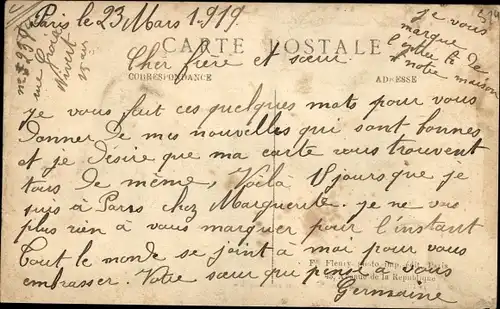 Paris le 23 Mars 1919.
CARTE POSTALE
Cher frère et sœur
CORRESPONDANCE
ADRESSE
je vous fait ces quelques mots pour vous
Donner De mes nouvelles qui sont bonnes
et je Désire que ma carte vous trouvent
tous De même, Voilà 15 jours que je
suis à Paris chez Marguerite. je ne vois
plus rien à vous marquer pour l'instant
Tout le monde se joint à moi pour vous
embrasser. Votre sœur qui pense à vous
Germaine
je vous
marque De
notre maison
Vivert
Fleury photo imp. édit. Paris
Avenue de la République